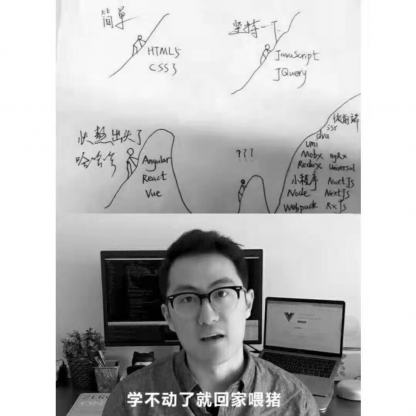 简单
HTML5
CSS3
坚持一下
JavaScript
JQuery
快熬出头了
哈哈哈
Angular
React
Vue
???
微前端
SSR
dva
umi
Mobx
ngRx
Redux
Universal
小程序
NuxtJs
Node
NextJs
Webpack
RxJs
学不动了就回家喂猪